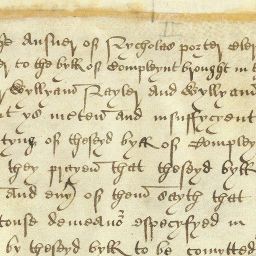 he Answer of Nycholas porter cler
er to the byll of Compleynt brought in b
Wyllyam Nayler and Wyllyam
t ys incerten and insuffycyent
tyng of theseyd byll of Compley
they prayen that theseyd byll
and eny of them sayth that
touse demeanor especyfyed in
by theseyd byll to be comytted